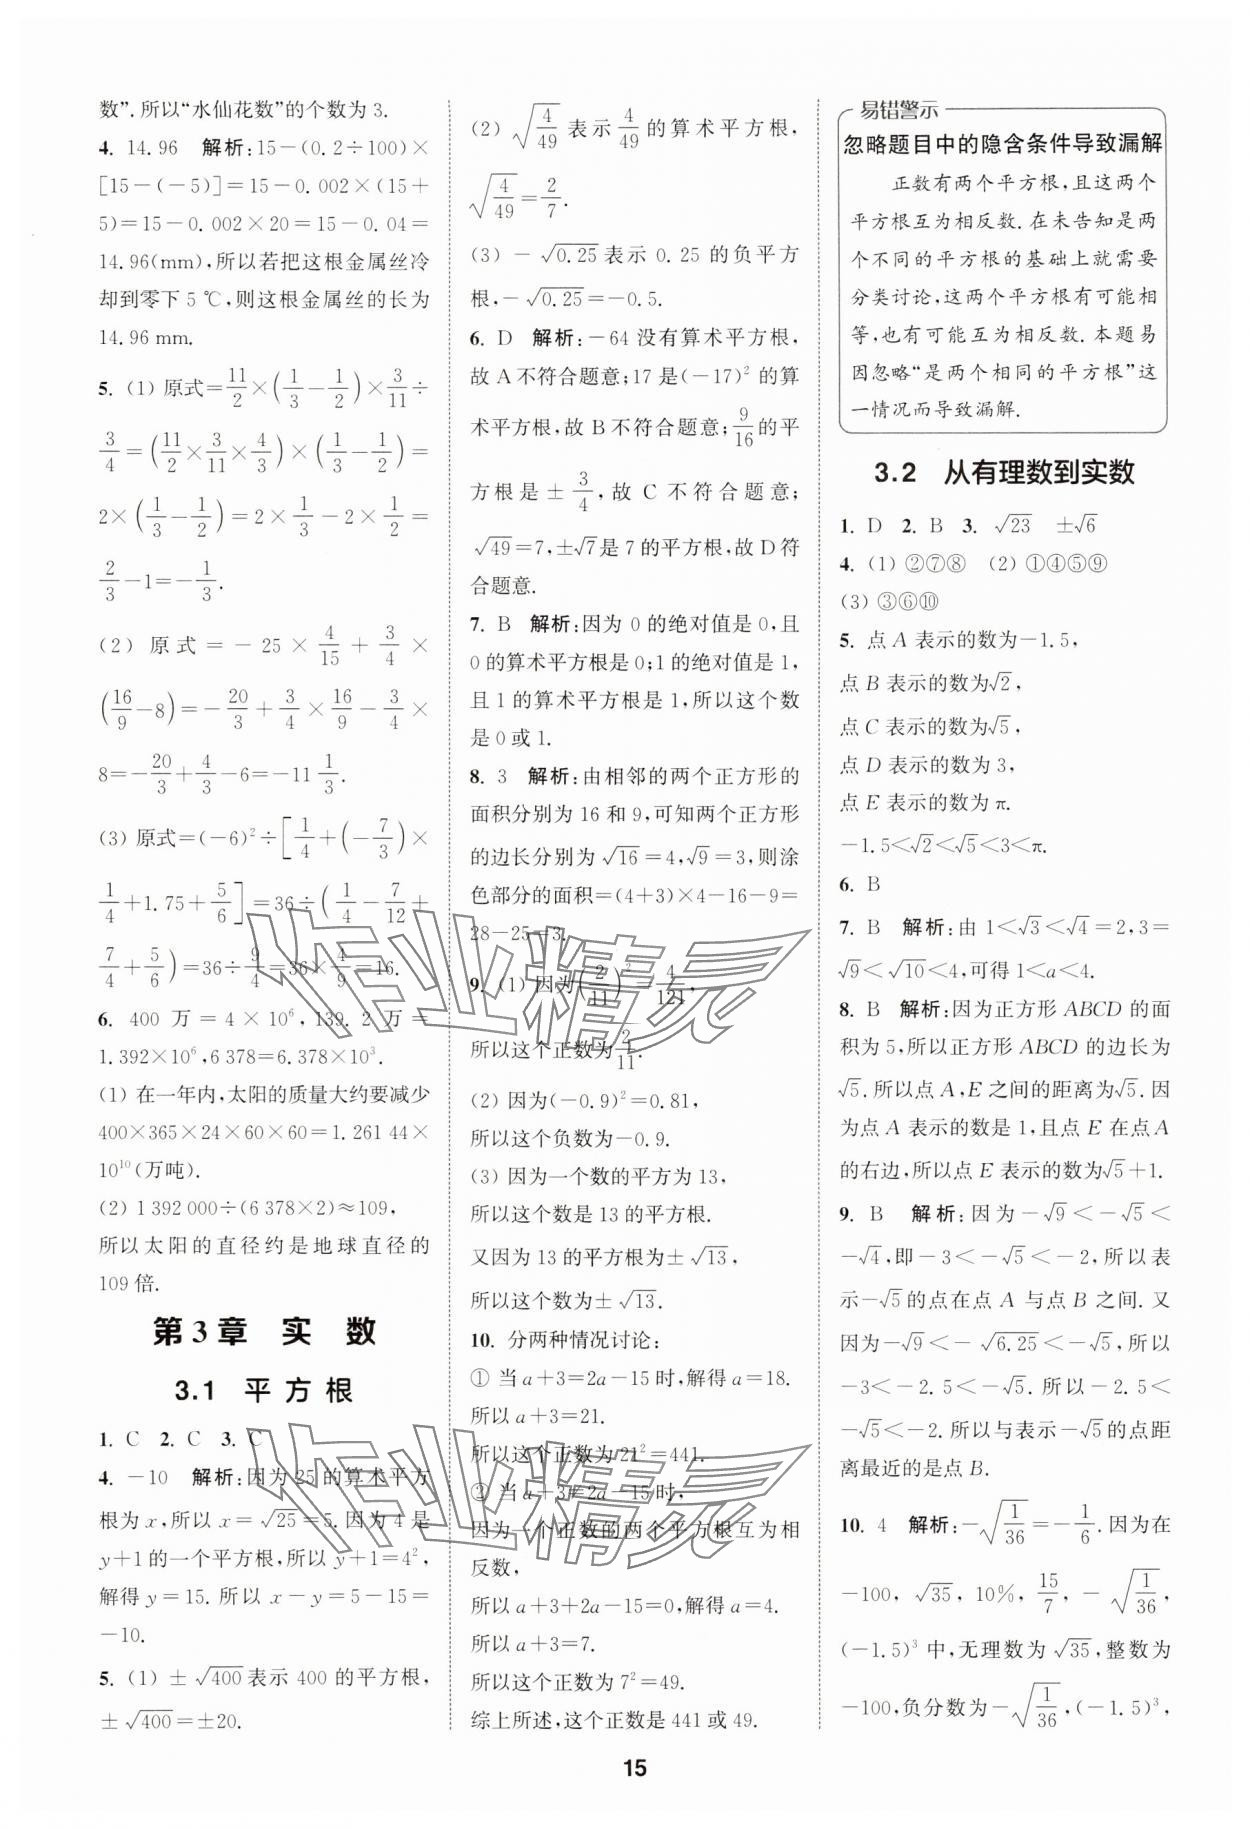 数”. 所以“水仙花数”的个数为 3.
4. 14.96 解析:15-(0.2÷100)×
[15-(-5)]=15-0.002×(15+
5)=15-0.002×20=15-0.04=
14.96(mm),所以若把这根金属丝冷
却到零下 5 ℃,则这根金属丝的长为
14.96 mm.
5. (1) 原式=11/2×(1/3-1/2)×3/11÷
3/4=(11/2×3/11×4/3)×(1/3-1/2)=
2×(1/3-1/2)=2×1/3-2×1/2=
2/3-1=-1/3.
(2) 原式=-25×4/15+3/4×
(16/9-8)=-20/3+3/4×16/9-3/4×
8=-20/3+4/3-6=-11 1/3.
(3) 原式=(-6)²÷[1/4+(-7/3)×
1/4+1.75+5/6]=36÷(1/4-7/12+
7/4+5/6)=36÷9/4=36×4/9=16.
6. 400 万=4×10⁶,139.2 万=
1.392×10⁶,6 378=6.378×10³.
(1) 在一年内,太阳的质量大约要减少
400×365×24×60×60=1.261 44×
10¹⁰(万吨).
(2) 1 392 000÷(6 378×2)≈109,
所以太阳的直径约是地球直径的
109 倍.
第 3 章 实 数
3.1 平 方 根
1. C 2. C 3. C
4. -10 解析:因为 25 的算术平方
根为 x,所以 x=√25=5. 因为 4 是
y+1 的一个平方根,所以 y+1=4²,
解得 y=15. 所以 x-y=5-15=
-10.
5. (1) ±√400表示 400 的平方根,
±√400=±20.
(2) √(4/49)表示4/49的算术平方根,
√(4/49)=2/7.
(3) -√0.25表示 0.25 的负平方
根,-√0.25=-0.5.
6. D 解析:-64 没有算术平方根,
故 A 不符合题意;17 是(-17)² 的算
术平方根,故 B 不符合题意;9/16的平
方根是±3/4,故 C 不符合题意;
√49=7,±√7是 7 的平方根,故 D 符
合题意.
7. B 解析:因为 0 的绝对值是 0,且
0 的算术平方根是 0;1 的绝对值是 1,
且 1 的算术平方根是 1,所以这个数
是 0 或 1.
8. 3 解析:由相邻的两个正方形的
面积分别为 16 和 9,可知两个正方形
的边长分别为√16=4,√9=3,则涂
色部分的面积=(4+3)×4-16-9=
28-25=3.
9. (1) 因为(2/11)²=4/121,
所以这个正数为2/11.
(2) 因为(-0.9)²=0.81,
所以这个负数为-0.9.
(3) 因为一个数的平方为 13,
所以这个数是 13 的平方根.
又因为 13 的平方根为±√13,
所以这个数为±√13.
10. 分两种情况讨论:
① 当 a+3=2a-15 时,解得 a=18.
所以 a+3=21.
所以这个正数为 21²=441.
② 当 a+3≠2a-15 时,
因为一个正数的两个平方根互为相
反数,
所以 a+3+2a-15=0,解得 a=4.
所以 a+3=7.
所以这个正数为 7²=49.
综上所述,这个正数是 441 或 49.
易错警示
忽略题目中的隐含条件导致漏解
正数有两个平方根,且这两个
平方根互为相反数. 在未告知是两
个不同的平方根的基础上就需要
分类讨论,这两个平方根有可能相
等,也有可能互为相反数. 本题易
因忽略“是两个相同的平方根”这
一情况而导致漏解.
3.2 从有理数到实数
1. D 2. B 3. √23 ±√6
4. (1) ②⑦⑧ (2) ①④⑤⑨
(3) ③⑥⑩
5. 点 A 表示的数为-1.5,
点 B 表示的数为√2,
点 C 表示的数为√5,
点 D 表示的数为 3,
点 E 表示的数为 π.
-1.5<√2<√5<3<π.
6. B
7. B 解析:由 1<√3<√4=2,3=
√9<√10<4,可得 1<a<4.
8. B 解析:因为正方形 ABCD 的面
积为 5,所以正方形 ABCD 的边长为
√5. 所以点 A,E 之间的距离为√5. 因
为点 A 表示的数是 1,且点 E 在点 A
的右边,所以点 E 表示的数为√5+1.
9. B 解析:因为-√9<-√5<
-√4,即-3<-√5<-2,所以表
示-√5的点在点 A 与点 B 之间. 又
因为-√9<-√6.25<-√5,所以
-3<-2.5<-√5. 所以-2.5<
-√5<-2. 所以与表示-√5的点距
离最近的是点 B.
10. 4 解析:-√(1/36)=-1/6. 因为在
-100,√35,10%,15/7,-√(1/36),
(-1.5)³ 中,无理数为√35,整数为
-100,负分数为-√(1/36),(-1.5)³,
15
作业精灵
作业精灵